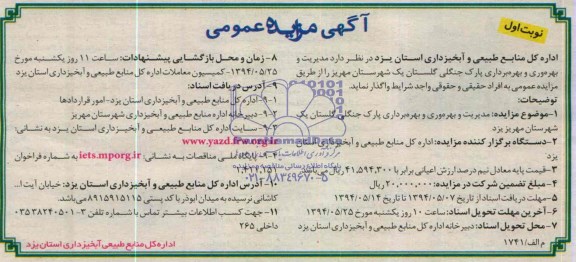 آگهی مزایده عمومی
نوبت اول
اداره کل منابع طبیعی و آبخیزداری استان یزد در نظر دارد مدیریت و
بهره‌وری و بهره‌برداری پارک جنگلی گلستان یک شهرستان مهریز را از طریق
مزایده عمومی به افراد حقیقی و حقوقی واجد شرایط واگذار نماید.
توضیحات:
۱-موضوع مزایده: مدیریت و بهره‌وری و بهره‌برداری پارک جنگلی گلستان یک
شهرستان مهریز یزد
۲-دستگاه برگزار کننده مزایده: اداره کل منابع طبیعی و آبخیزداری
یزد
۳-قیمت پایه معادل نیم درصد ارزش اعیانی برابر با ۴۱,۵۹۴,۳۰۰ ریال می‌باشد
۴-مبلغ تضمین شرکت در مزایده: ۲۰,۰۰۰,۰۰۰ ریال
۵-مهلت دریافت اسناد: از تاریخ ۱۳۹۴/۰۵/۰۷ تا تاریخ ۱۳۹۴/۰۵/۱۴
۶-آخرین مهلت تحویل اسناد: ساعت ۱۰ روز یکشنبه مورخ ۱۳۹۴/۰۵/۲۵
۷-محل تحویل اسناد: دبیرخانه اداره کل منابع طبیعی و آبخیزداری استان یزد
م الف/۱۷۴۱
۸-زمان و محل بازگشایی پیشنهادات: ساعت ۱۱ روز یکشنبه مورخ
۱۳۹۴/۰۵/۲۵-کمیسیون معاملات اداره کل منابع طبیعی و آبخیزداری استان یزد
۹-آدرس دریافت اسناد:
۹-۱-اداره کل منابع طبیعی و آبخیزداری استان یزد-امور قراردادها
۹-۲-دبیرخانه اداره منابع طبیعی و آبخیزداری شهرستان مهریز
۹-۳-سایت اداره کل منابع طبیعی و آبخیزداری استان یزد به نشانی:
www.yazd.frw.org.ir
۹-۴-پایگاه ملی مناقصات به نشانی: iets.mporg.ir به شماره فراخوان
۱,۴۲۷,۱۵۱
۱۰-آدرس اداره کل منابع طبیعی و آبخیزداری استان یزد: خیابان آیت ا...
کاشانی نرسیده به میدان ابوذر با کد پستی ۸۹۱۵۹۱۵۱۱۵ می‌باشد
۱۱-جهت کسب اطلاعات بیشتر تماس با شماره تلفن ۳-۰۳۵۳۸۲۴۰۵۰۱
داخلی ۲۶۵
اداره کل منابع طبیعی آبخیزداری استان یزد
۰۲۱-۸۸۳۴۹۶۷۰-۵